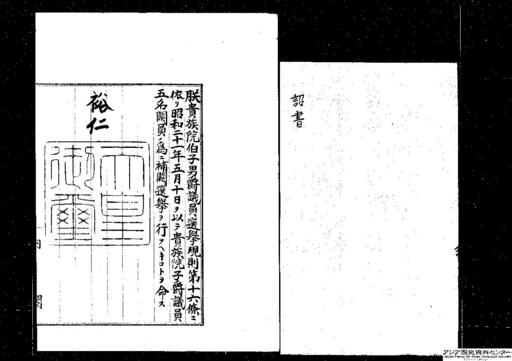 詔書
朕貴族院伯子男爵議員選擧規則第十六條ニ
依リ昭和二十一年五月十日ヲ以テ貴族院子爵議員
五名闕員ノ爲ニ補闕選擧ヲ行フヘキコトヲ命ス
裕仁
天皇
御璽
アジア歴史資料センター